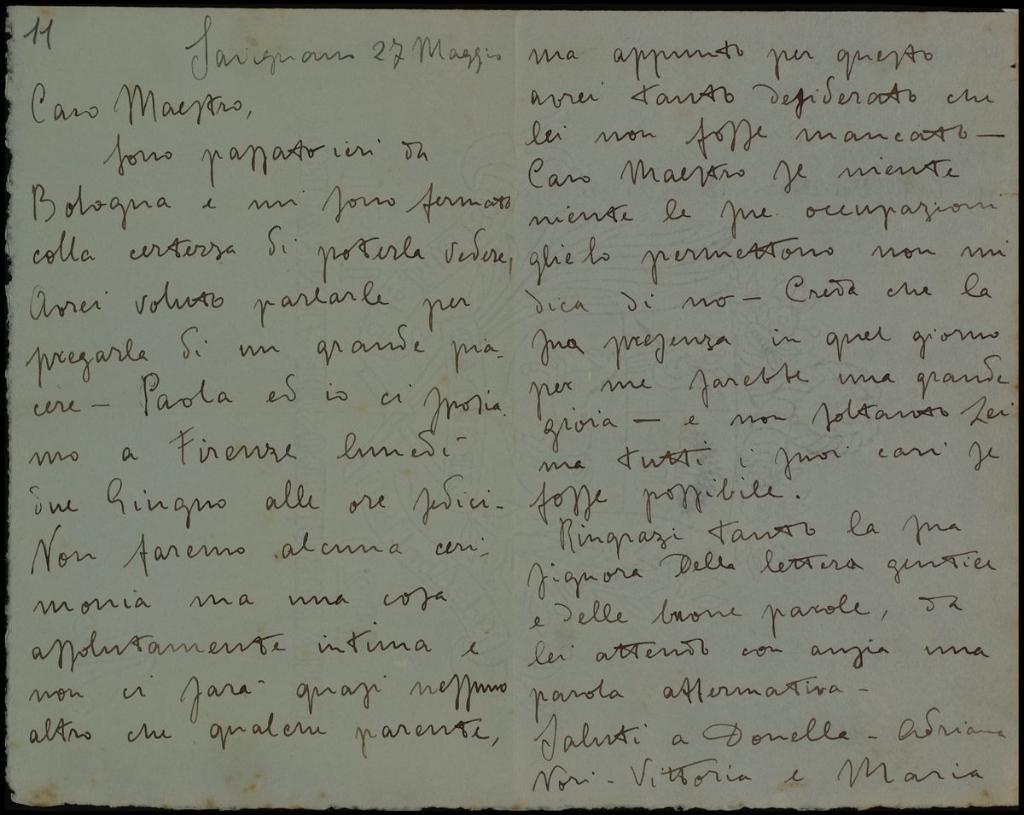 11
Savignano 27 Maggio
Caro Maestro,
sono passato ieri da
Bologna e mi sono fermato
colla certezza di poterla vedere,
Avrei voluto parlarle per
pregarla di un grande pia-
cere - Paola ed io ci sposia-
mo a Firenze lunedì
due Giugno alle ore sedici -
Non faremo alcuna ceri-
monia ma una cosa
assolutamente intima e
non ci sarà quasi nessuno
altro che qualche parente,
ma appunto per questo
avrei tanto desiderato che
lei non fosse mancato -
Caro Maestro se niente
niente le sue occupazioni
glielo permettono non mi
dica di no - Creda che la
sua presenza in quel giorno
per me sarebbe una grande
gioia - e non soltanto Lei
ma tutti i suoi cari se
fosse possibile.
Ringrazi tanto la sua
signora Della lettera gentile
e delle buone parole, da
lei attendo con ansia una
parola affermativa -
Saluti a Donella - Adriana
Nori - Vittoria e Maria